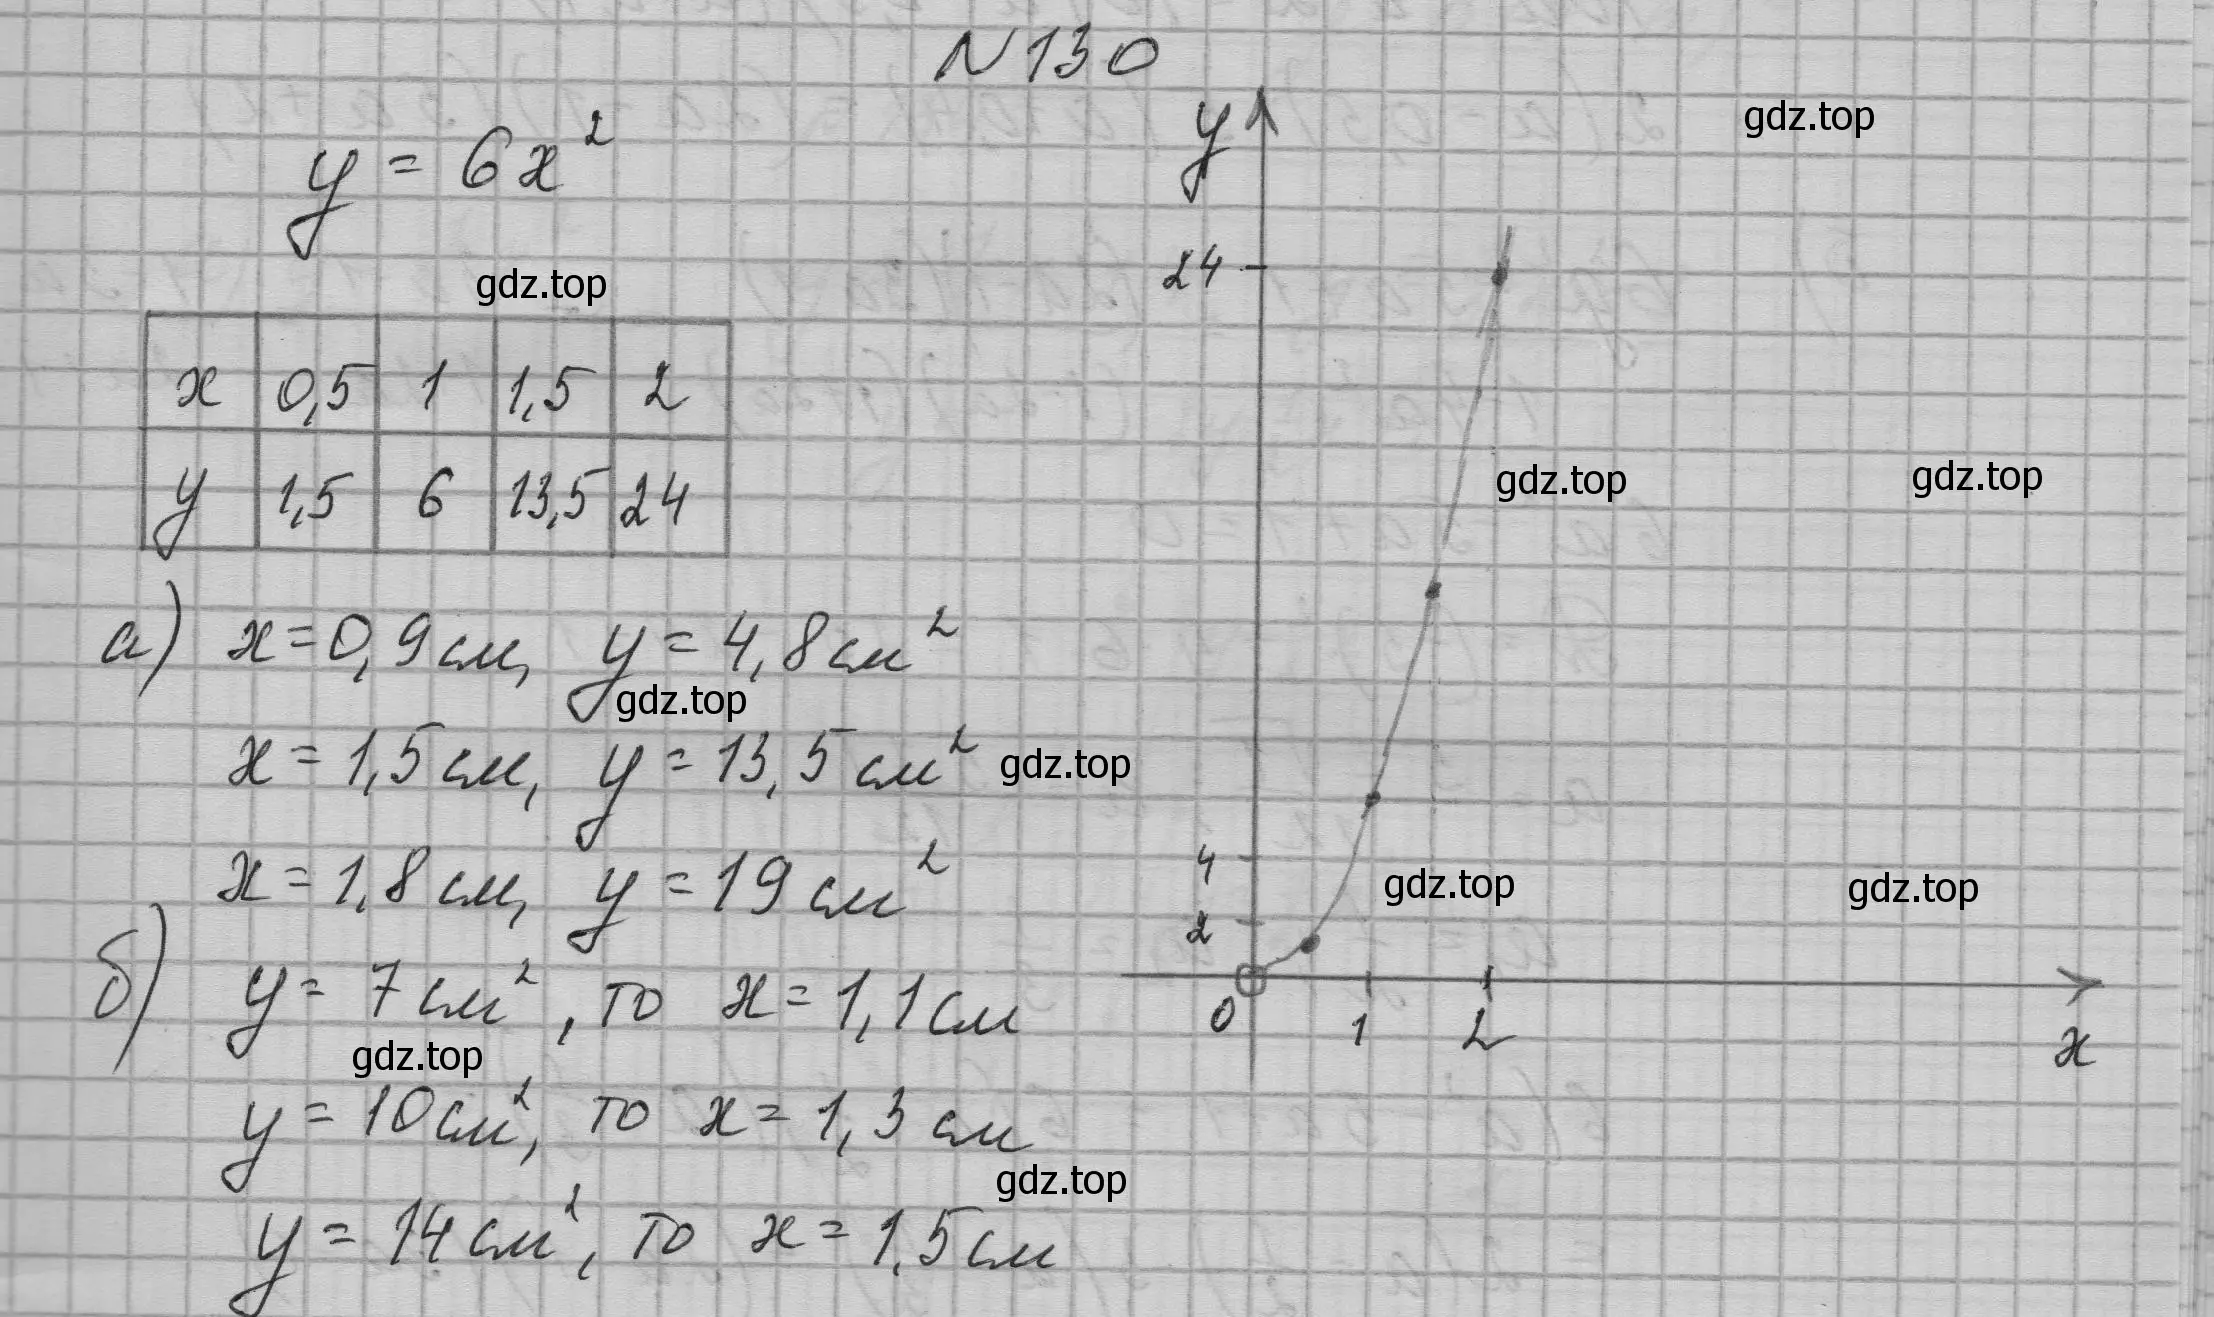 N 130
y = 6x²
gdz.top
gdz.top
x 0,5 1 1,5 2
y 1,5 6 13,5 24
а) x = 0,9 см, y = 4,8 см²
gdz.top
x = 1,5 см, y = 13,5 см²
gdz.top
x = 1,8 см, y = 19 см²
б) y = 7 см², то x = 1,1 см
gdz.top
y = 10 см², то x = 1,3 см
gdz.top
y = 14 см², то x = 1,5 см
y
24
gdz.top
gdz.top
4
gdz.top
gdz.top
2
0 1 2
x